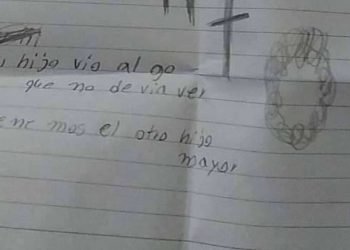 hijo vio al go
que no de via ver
mos el otro hijo
mayor